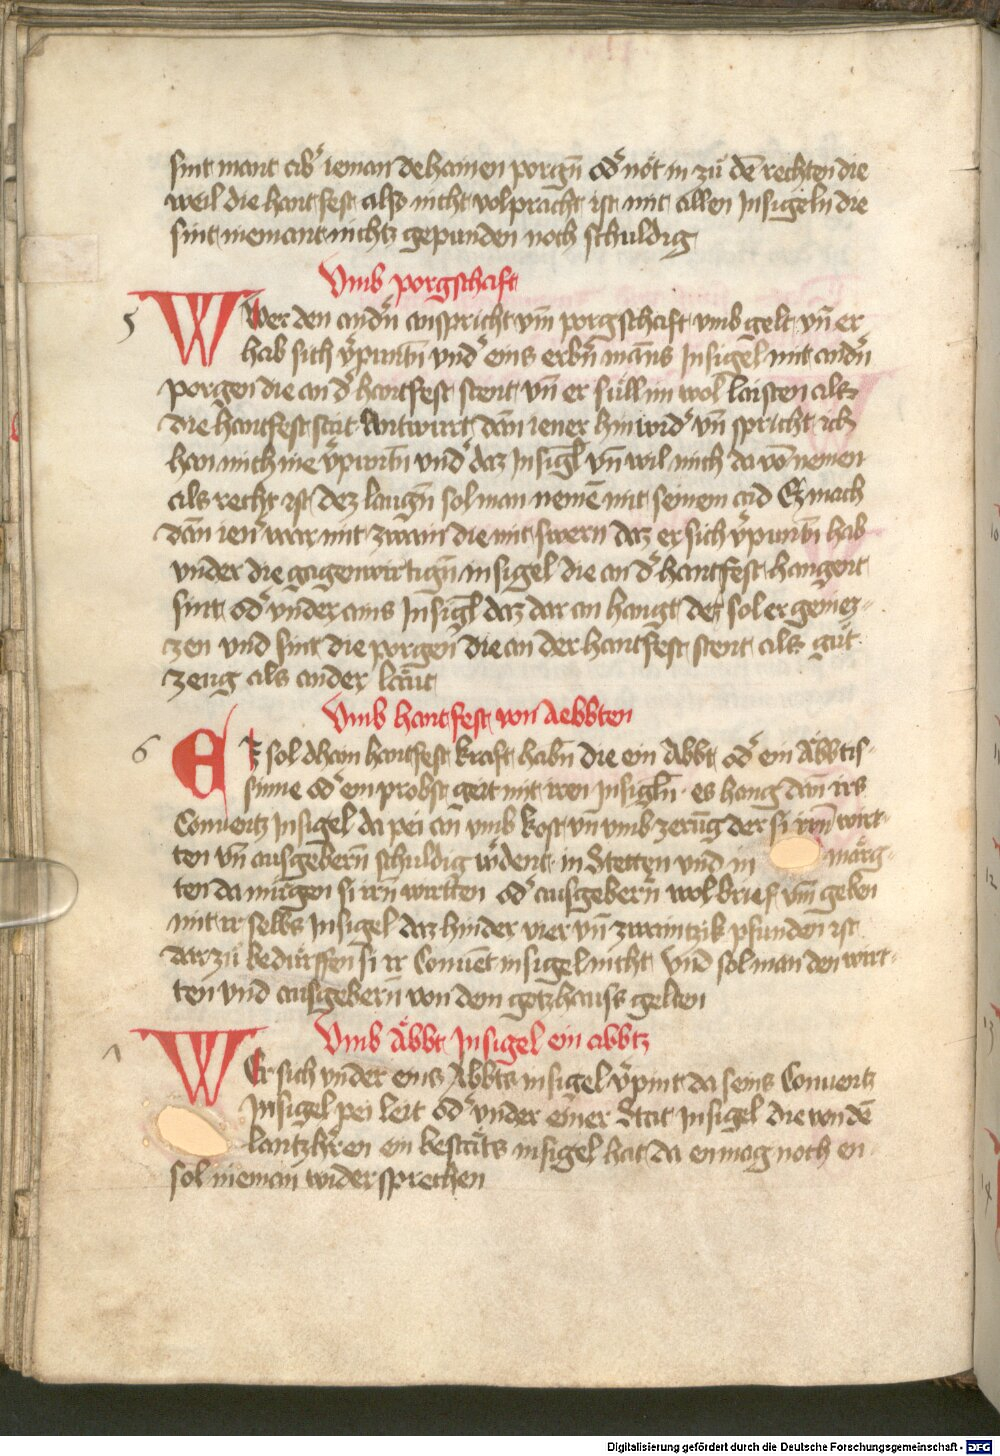 sint mant ab' ieman dehainen porgn̄ od' nöt in zu̇ dē rechten die
weil die hantfest also nicht volpracht ist mit allen Insigeln die
sint niemant nichtz gepunden noch schuldig
Vmb porgschaft
5 Wer den andn̄ anspricht vm̄ porgschaft vmb gelt vn̄ er
hab sich v'puntn̄ vnd' eins erbn̄ mans Insigel mit andn̄
porgen die an d' hantfest stent vn̄ er süll im wol laisten als
die hantfest stat Antwurt dan̄ iener hinwid' vn̄ spricht ich
han mich nie v'puntn̄ vnd' daz Insigl vn̄ wil mich da vō nemen
als recht ist dez laugn̄ sol man nemē mit seinem aid Ez mach
dan̄ ien' war mit zwain die mit swern daz er sich v'puntn̄ hab
vnder die gagenwirtign̄ insigel die an d' hantfest hangent
sint od' vnder ains Insigl daz dar an hangt dez sol er geniez=
zen vnd sint die porgen die an der hantfest stent als gu̇t
zeug als ander läut
Vmb hantfest von Aebbten
6 Ez sol dhain hantfest kraft habn̄ die ein Abbt od' ein Äbbtis=
sinne od' ein probst geit mit iren Insigln̄ es hang dan̄ irs
Conuentz Insigel da pei an̄ vmb kost vn̄ vmb zerūg der si irn̄ wirt=
ten vn̄ ausgebern̄ schuldig w'dent in Stetten vnd in märg=
ten da mu̇gen si irn̄ wirtten od' ausgebern̄ wol brief vm̄ geben
mit ir selbs Insigel daz hinder vier vn̄ zwaintzik pfunden ist
dar zu̇ bedürffen si ir Conuēt insigel nicht Vnd sol man den wirt=
ten vnd ausgebern̄ von dem gotzhauss gelten
Vmb Äbbt Insigel ein abbtz
7 Wer sich vnder eins Abbts insigel v'pint da seins Conuentz
Insigel pei leit od' vnder einer Stat Insigel die von dē
lantzh'ren ein bestäts insigel hat da en mag noch en
sol nieman wider sprechen
Digitalisierung gefördert durch die Deutsche Forschungsgemeinschaft - DFG